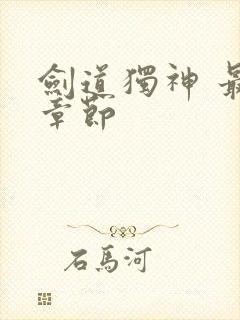 劍道獨神 最
章節
石馬河